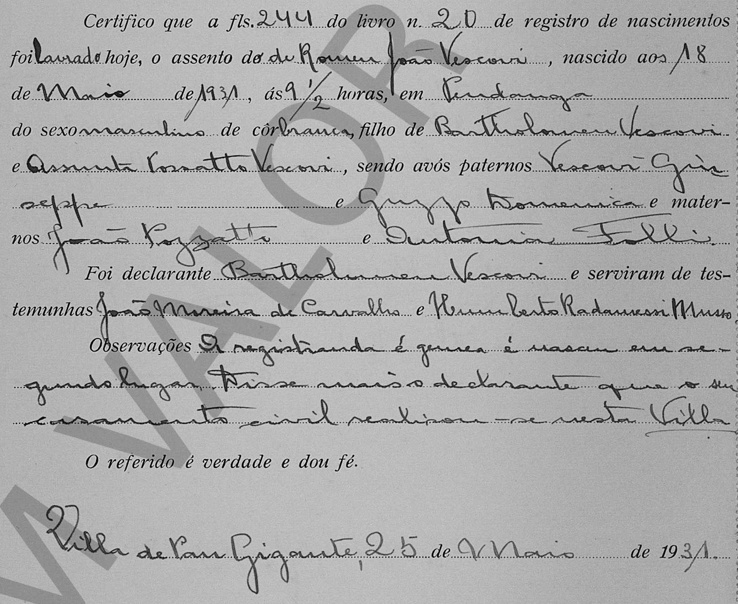 Certifico que a fls. 244 do livro n. 20 de registro de nascimentos
foi lavrado hoje, o assento do de Romeu João Vescovi, nascido aos 18
de Maio de 1931, ás 9 1/2 horas, em Pendanga
do sexo masculino de côr branca, filho de Bartholomeu Vescovi
e Assunta Possatto Vescovi, sendo avós paternos Vescovi Giu
seppe e Guzzo Domenica e mater-
nos João Pozzatti e Antonia Folli
Foi declarante Bartholomeu Vescovi e serviram de tes-
temunhas João Moreira de Carvalho e Humberto Radamessi Musso
Observações A registranda é gemea é nasceu em se-
gundo lugar. Disse mais o declarante que o seu
casamento civil realisou-se nesta Villa
O referido é verdade e dou fé.
Villa de Pau Gigante, 25 de Maio de 1931.
M VALOR